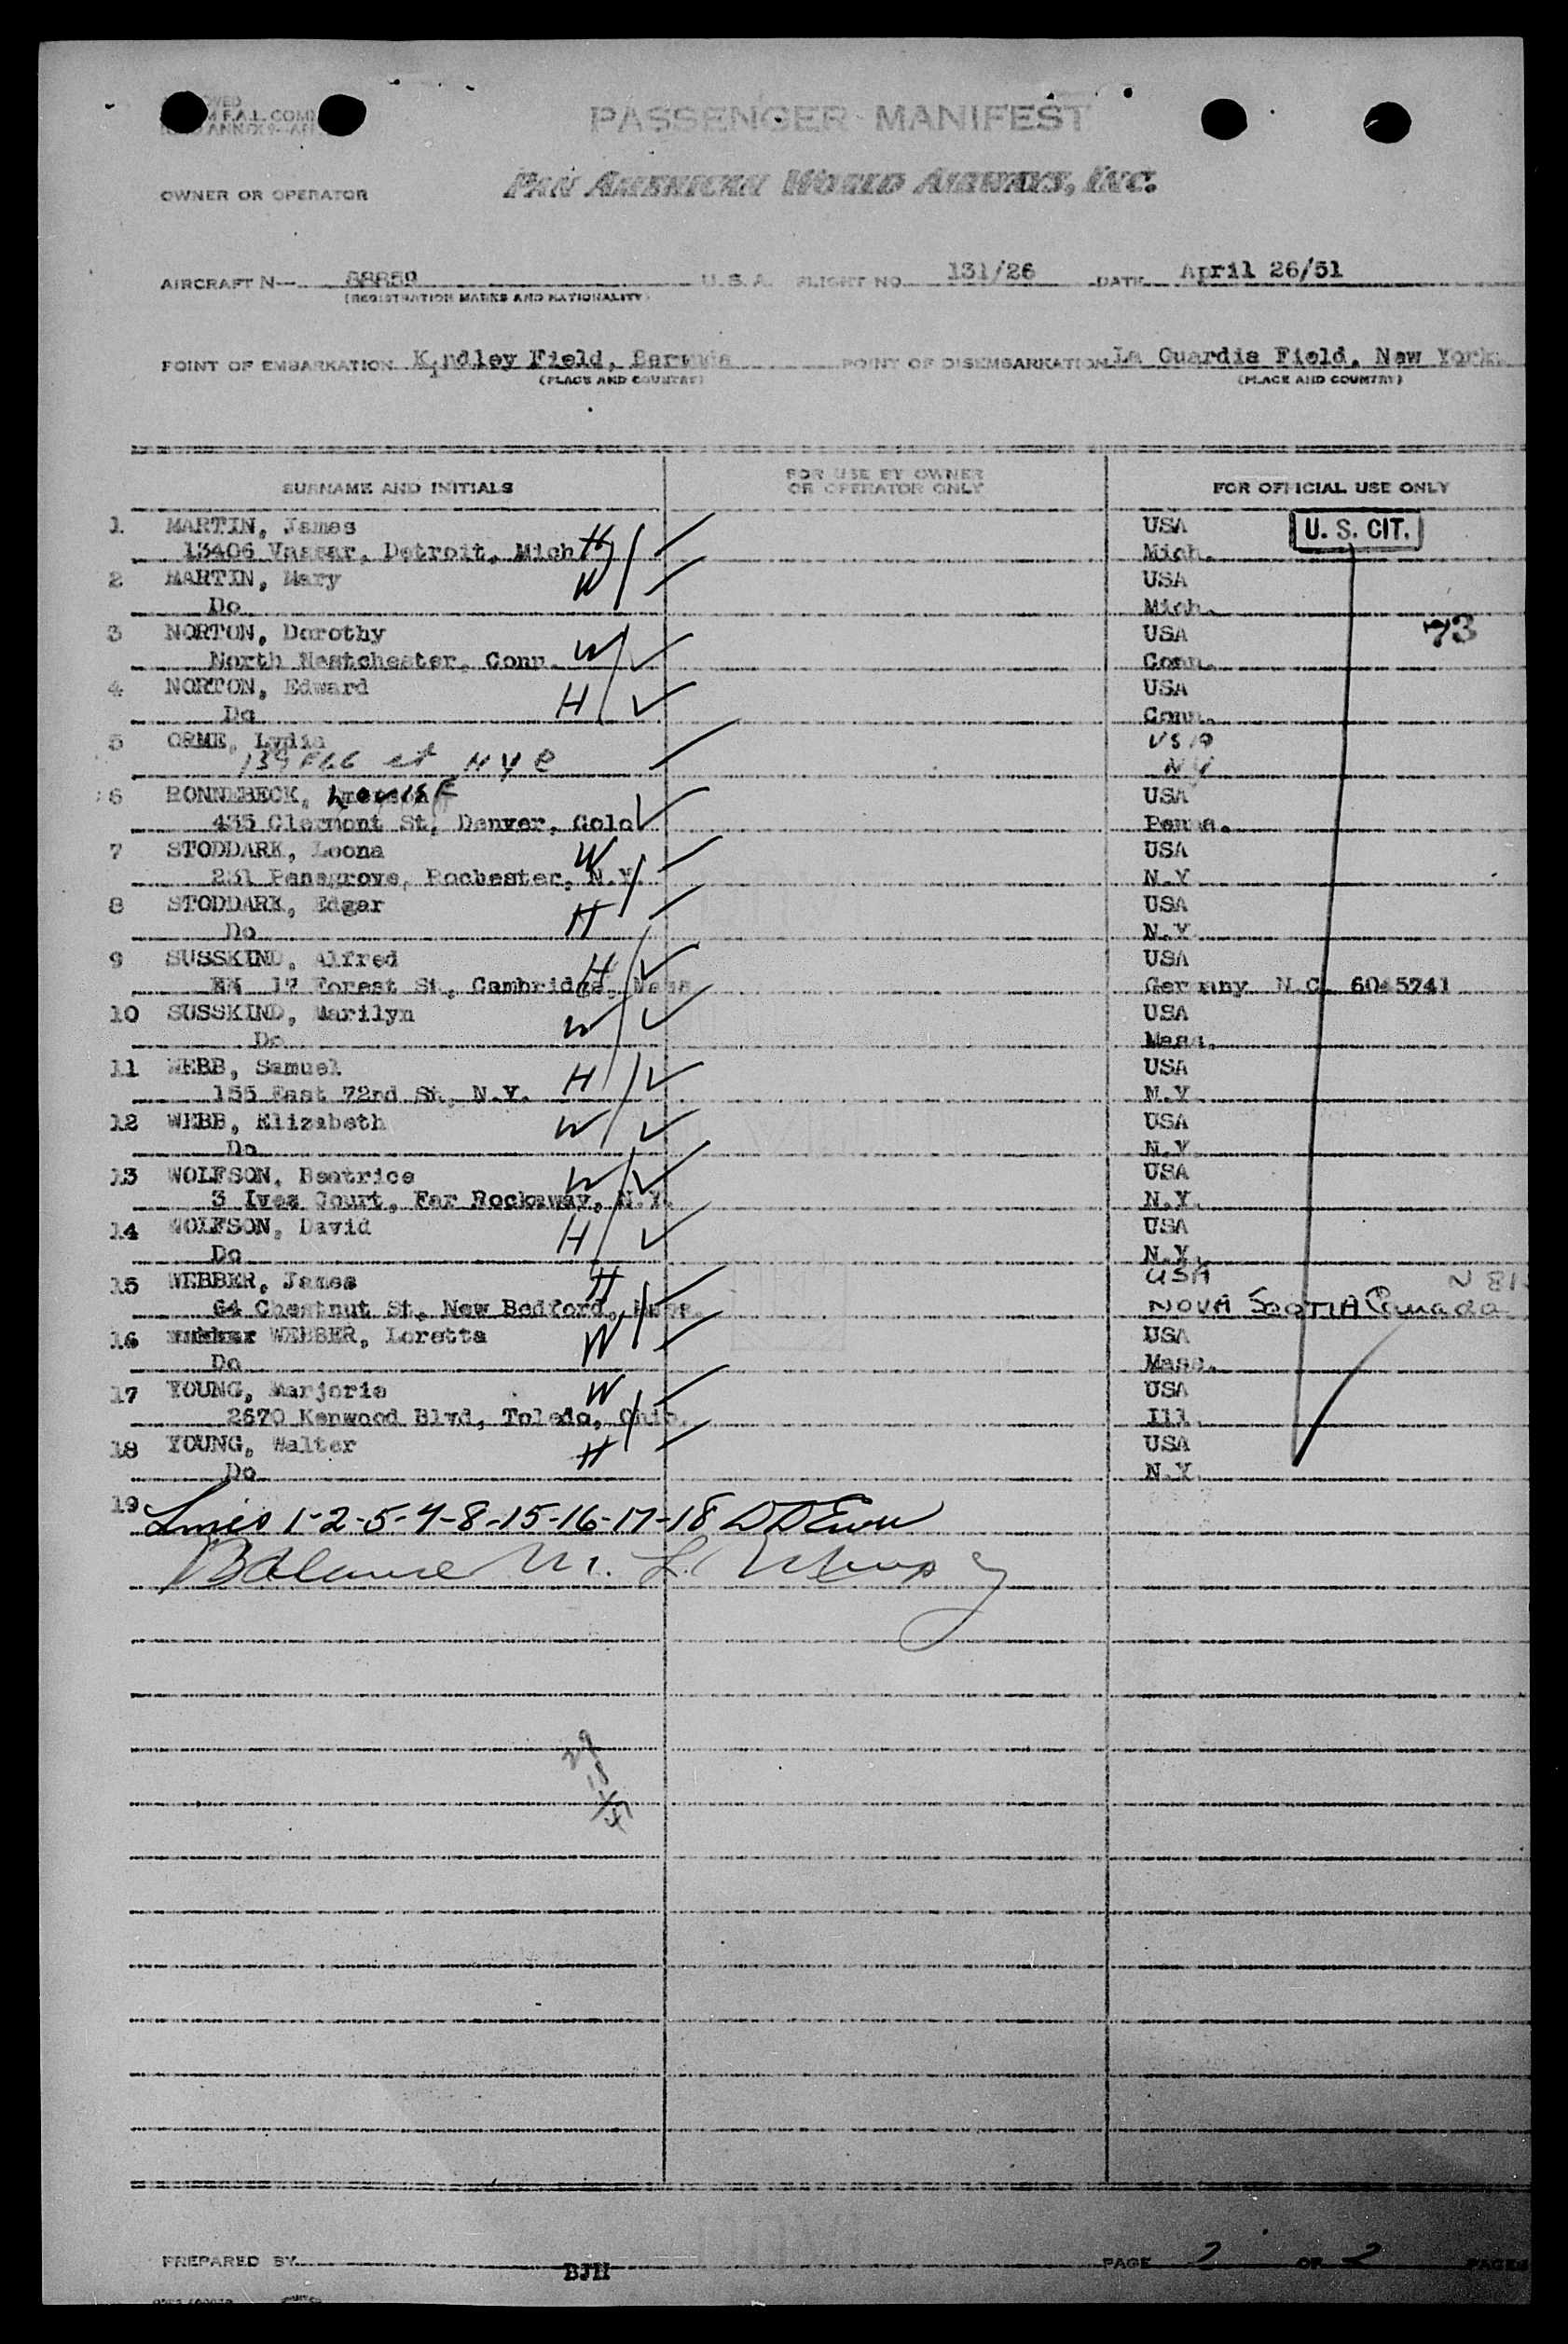 PASSENGER MANIFEST
PAN AMERICAN WORLD AIRWAYS, INC.
OWNER OR OPERATOR
AIRCRAFT N— 88859 U. S. A. FLIGHT NO. 131/26 DATE April 26/51
(REGISTRATION MARKS AND NATIONALITY)
POINT OF EMBARKATION Kindley Field, Bermuda POINT OF DISEMBARKATION La Guardia Field, New York.
(PLACE AND COUNTRY) (PLACE AND COUNTRY)
SURNAME AND INITIALS FOR USE BY OWNER OR OPERATOR ONLY FOR OFFICIAL USE ONLY
1 MARTIN, James USA U. S. CIT.
13406 Vassar, Detroit, Mich H Mich.
2 MARTIN, Mary W USA
Do Mich.
3 NORTON, Dorothy USA 73
North Westchester, Conn. W Conn.
4 NORTON, Edward H USA
Do Conn.
5 ORME, Lydia USA
139 E66 st N Y C NY
6 RONNEBECK, Louise USA
435 Clermont St, Denver, Colo Penna.
7 STODDARK, Leona W USA
231 Rochester, N.Y. N.Y
8 STODDARK, Edgar H USA
Do N.Y
9 SUSSKIND, Alfred H USA
17 Forest St, Cambridge, Mass Germany N.C. 6045741
10 SUSSKIND, Marilyn W USA
Do Mass.
11 WEBB, Samuel H USA
155 East 72nd St, N.Y. N.Y
12 WEBB, Elizabeth W USA
Do N.Y
13 WOLFSON, Beatrice W USA
3 Ives Court, Far Rockaway, N.Y. N.Y.
14 WOLFSON, David H USA
Do N.Y.
15 WEBBER, James H USA
64 Chestnut St, New Bedford, Mass. NOVA SCOTIA Canada
16 WEBBER, Loretta W USA
Do Mass.
17 YOUNG, Marjorie W USA
2670 Kenwood Blvd, Toledo, Ohio. Ill
18 YOUNG, Walter H USA
Do N.Y
19 Lines 1-2-5-7-8-15-16-17-18
Balance M. L.
29
18
47
PREPARED BY BJH PAGE 2 OF 2 PAGES